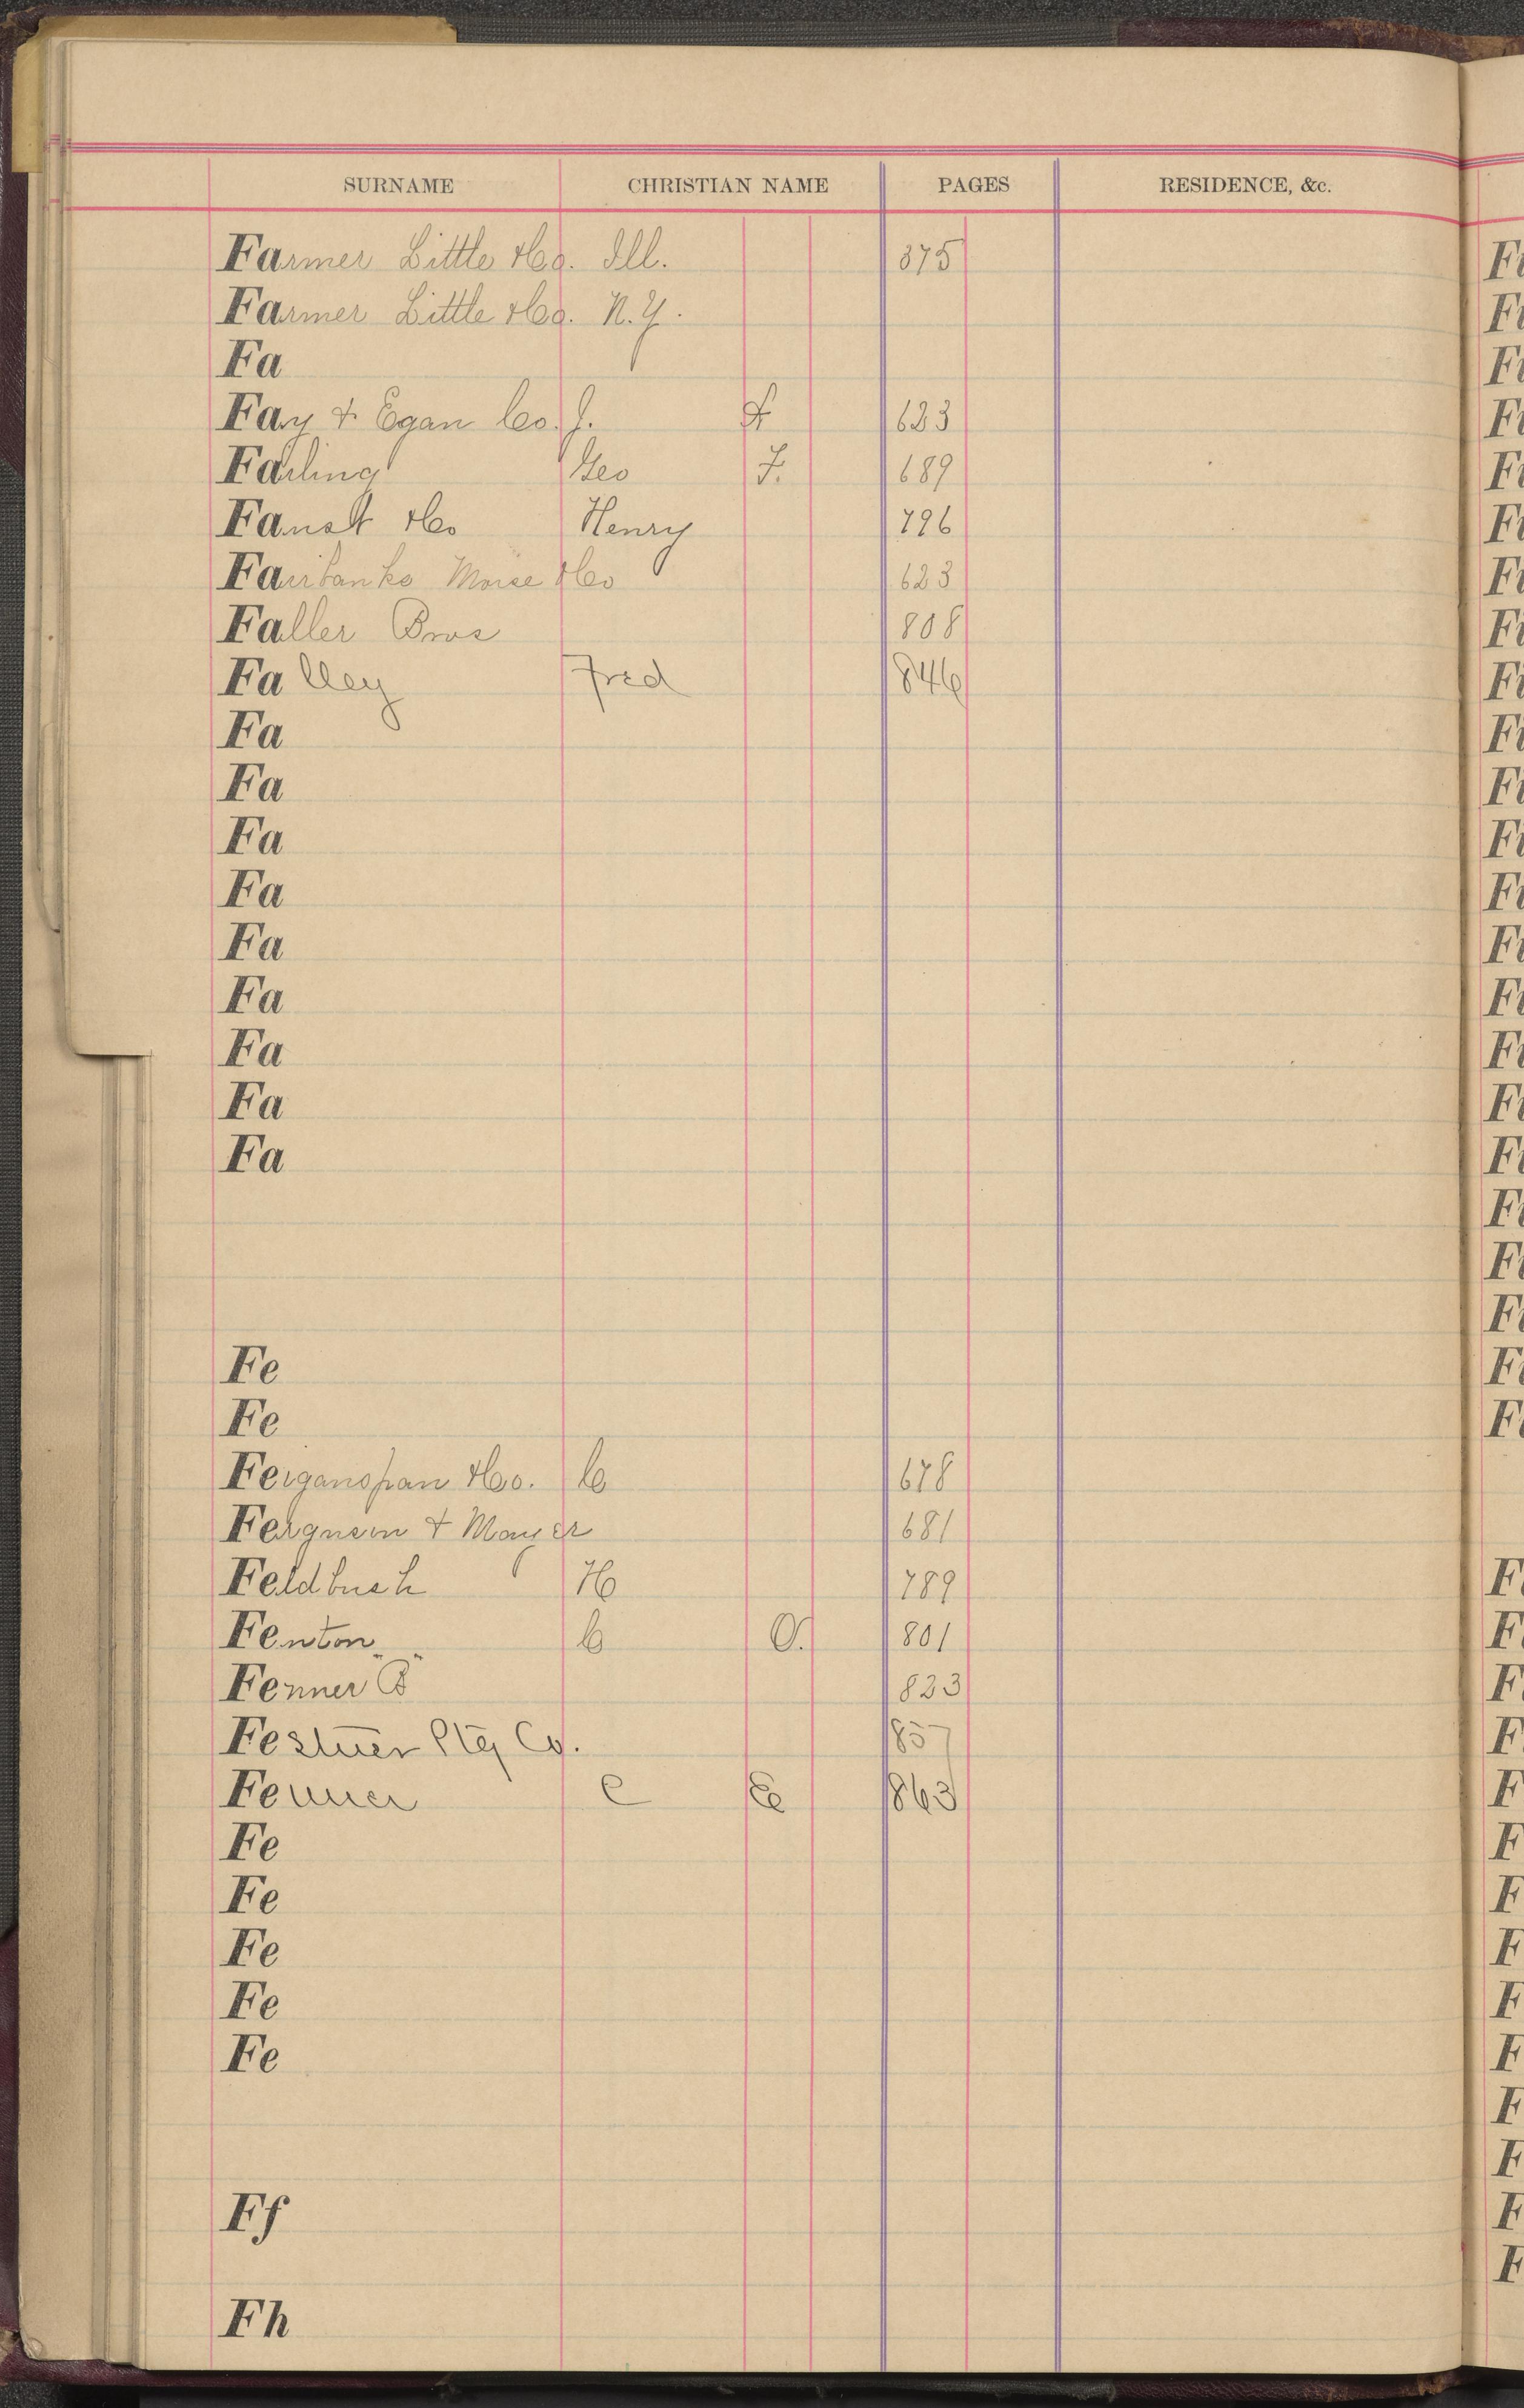 SURNAME CHRISTIAN NAME PAGES RESIDENCE, &c.
Farmer Little & Co. Ill. 375
Farmer Little & Co. N.Y.
Fa
Fay & Egan Co. J. A 623
Farling Geo F. 689
Faust & Co Henry 796
Fairbanks Morse & Co 623
Faller Bros 808
Falley Fred 846
Fa
Fa
Fa
Fa
Fa
Fa
Fa
Fa
Fa
Fe
Fe
Feiganspan & Co. C 678
Ferguson & Mayer 681
Feldbush H 789
Fenton C O. 801
Fenner B 823
Festner Ptg Co. 857
Fenner C E 863
Fe
Fe
Fe
Fe
Fe
Ff
Fh